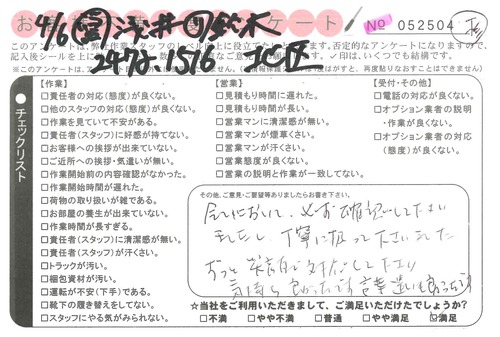 № 052504
4/6
2472-1516 北区
このアンケートは、弊社作業スタッフのレベル向上に役立て
記入後シールを上に
チェックリスト
【作業】
□責任者の対応(態度)が良くない。
□他のスタッフの対応(態度)が良くない。
□作業を見ていて不安がある。
□責任者(スタッフ)に好感が持てない。
□お客様への挨拶が出来ていない。
□ご近所への挨拶・気遣いが無い。
□作業開始前の内容確認がなかった。
□作業開始時間が遅れた。
□荷物の取り扱いが雑である。
□お部屋の養生が出来ていない。
□作業時間が長すぎる。
□責任者(スタッフ)に清潔感が無い。
□責任者(スタッフ)が汗くさい。
□トラックが汚い。
□梱包資材が汚い。
□運転が不安(下手)である。
□靴下の履き替えをしてない。
□スタッフにやる気がみられない。
【営業】
□見積もり時間に遅れた。
□見積もり時間が長い。
□営業マンに清潔感が無い。
□営業マンが煙草くさい。
□営業マンが汗くさい。
□営業態度が良くない。
□営業の説明と作業が一致してない。
【受付・その他】
□電話の対応が良くない。
□オプション業者の説明
・作業が良くない。
□オプション業者の対応
(態度)が良くない。
その他、ご意見・ご要望等ありましたらお書き下さい。
必ず確認して下さい
ましたし、丁寧に扱って下さいました
ずっと笑顔で対応して下さり
気持ち良かったです 言葉遣いも良かったです
☆当社をご利用いただきまして、ご満足いただけたでしょうか?
□不満 □やや不満 □普通 □やや満足 ☑満足